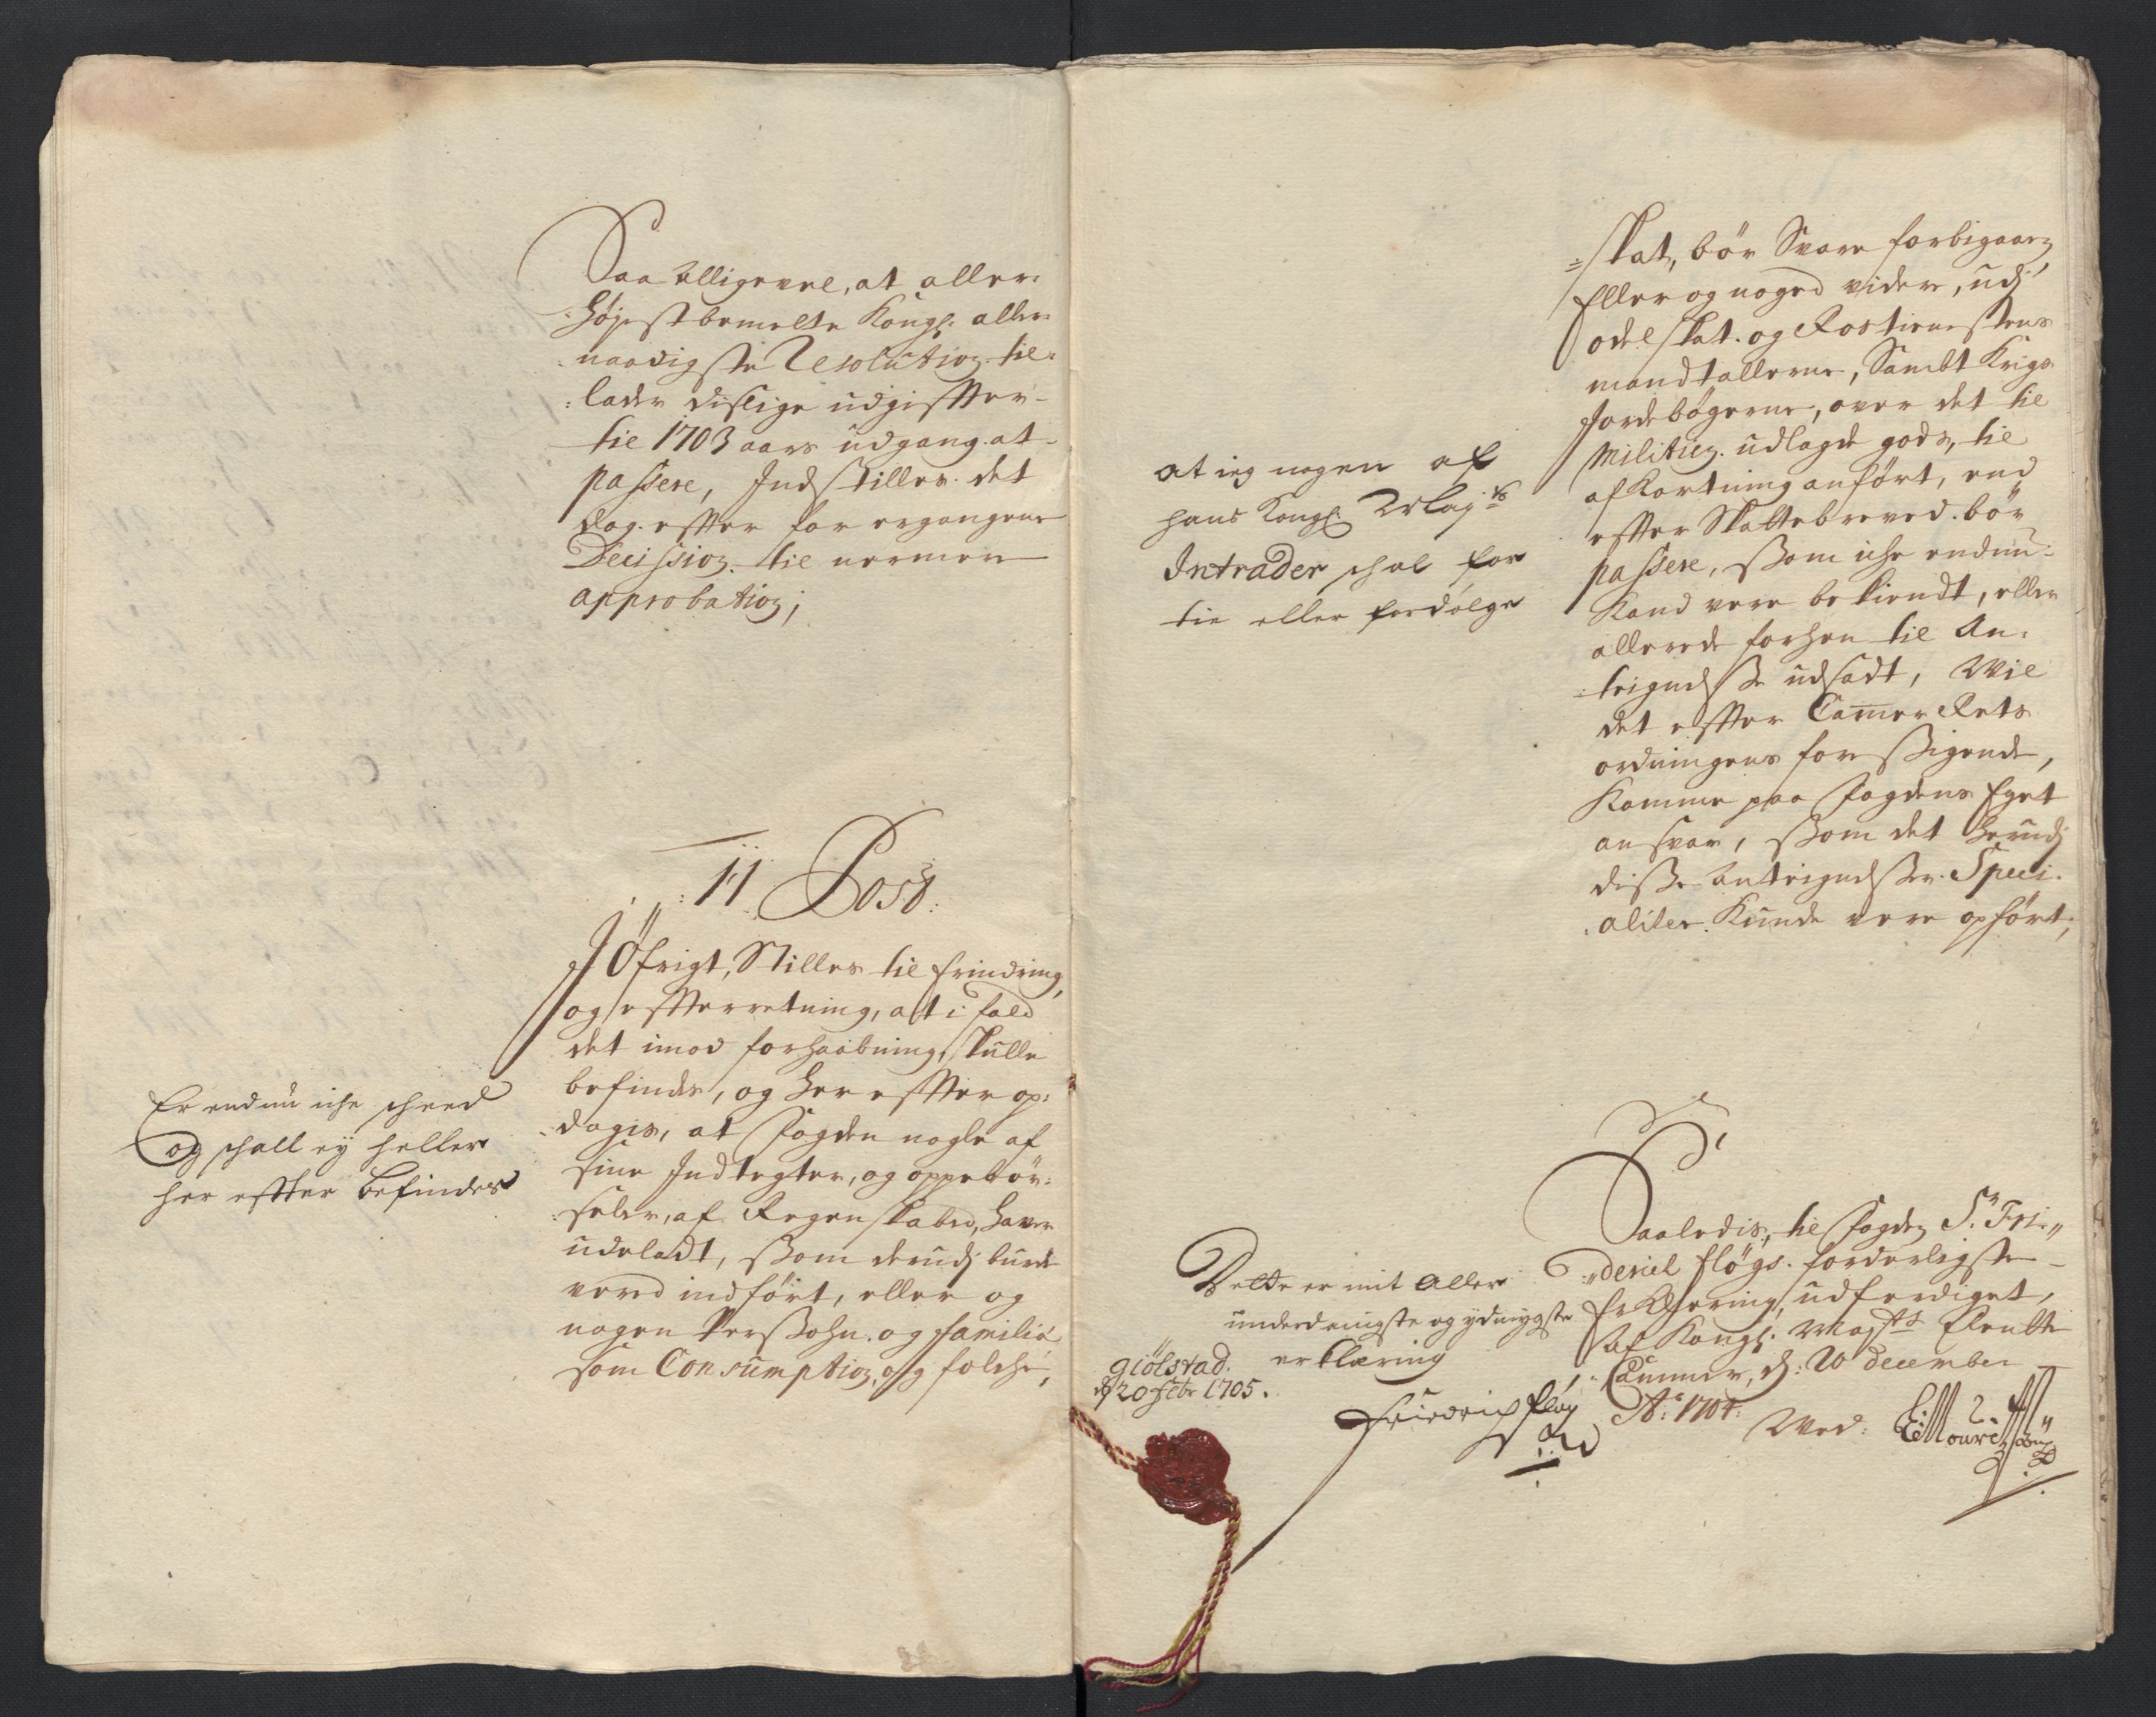 Saa alligevel, at aller:
:høyestbemelte Kongl: aller:
:naadigste Resolution til:
:lader dislige udgiffter
til 1703 aars udgang at
passere, Indstilles det
dog effter for ergangene
Decission til nermere
approbation;
11 Post:
I Øfrigt, Stilles til Erindring,
og effterretning, at i fald
det imod forhaabning, skulle
befindes, og her effter op:
:dagis, at Fogden nogle af
sine Indtegter, og oppebør:
:seler, af Regenskabed, haver
udeladt, ssom derudj burde
vered indført, eller og
nogen Perssohn og Familie
som Consumption, og folche,
Er endnu iche scheed
og schall ey heller
her effter befindes
at ieg nogen af
hans Kongl: Mayts
Intrader schal for
tie eller fordølge
=skat, bør Svare forbigaaen,
Eller og noged videre, udj
odelskat og Rostienestens
mandtallerne, Sambt Krigs
Jordebøgerne, over det til
Militien udlagde gods, til
afkortning anført, end
effter Skattebreved bør
passere, ssom iche endnu
Kand vere bekiendt, eller
allerede forhen til An:
:teignelsse udsadt, Wil
det effter Cammer Rets
ordningens forssigende,
Komme paa Fogdens Eget
ansvar, ssom det herudj
disse Anteignelsser Speci:
:aliter Kunde vere opført;
Saaledis, til Fogden Sr. Fri:
:derich Fløgs forderligste
Erklæring, udferdiget,
af Kongl: Mayts Rente
Cammer, d: 20 december
Ao: 1704:
Wed:
Dette er mit Aller
underdanigste og ydmygste
erklæring
Giölstad.
d 20 Febr 1705.
Friedrich Fløg